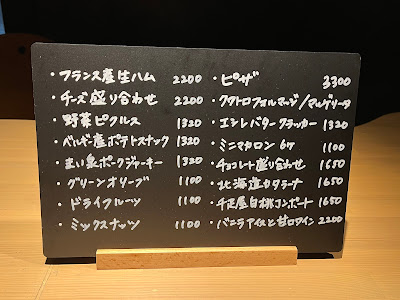 ・フランス産生ハム 2200
・チーズ盛り合わせ 2200
・野菜ピクルス 1320
・ベルギー産ポテトスナック 1320
・まい泉ポークジャーキー 1320
・グリーンオリーブ 1100
・ドライフルーツ 1100
・ミックスナッツ 1100
・ピザ 3300
・クワトロフォルマッジ/マルゲリータ
・エシレバタークラッカー 1320
・ミニマカロン 6ヶ 1100
・チョコレート盛り合わせ 1650
・北海道カタラーナ 1650
・千疋屋白桃コンポート 1650
・バニラアイスと甘口ワイン 2200